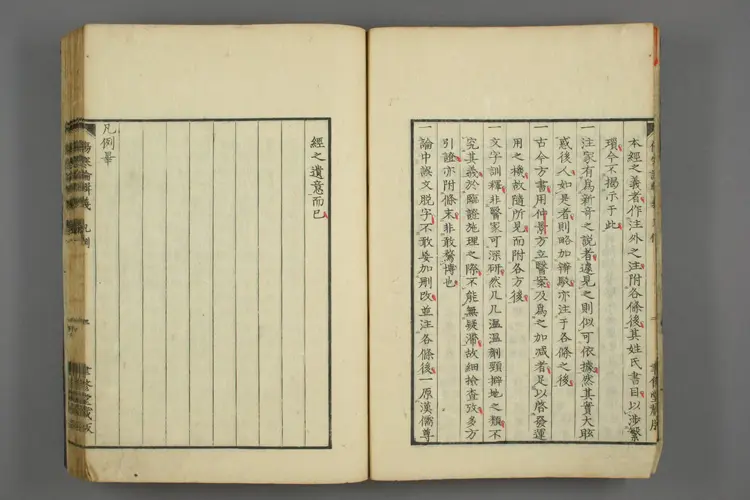 本經之義者作注外之注附各條後其姓氏書目以涉繁
瑣今不揭示于此
一注家有爲新奇之說者違見之則似可依據然其實大眩
惑後人如是者則略加辨駁亦注于各條之後
一古今方書用仲景方立醫案及爲之加減者足以啓發運
用之機故隨所見而附各方後
一文字訓釋非醫家可深研然几几溫溫劑頸擗地之類不
究其義於臨證施理之際不能無疑滯故細檢查攷多方
引證亦附條末非敢騖博也
一論中誤文脫字不敢妄加刪改並注各條後一原漢儒尊
經之遺意而已
凡例畢
傷寒論輯義 凡例
聿修堂藏版